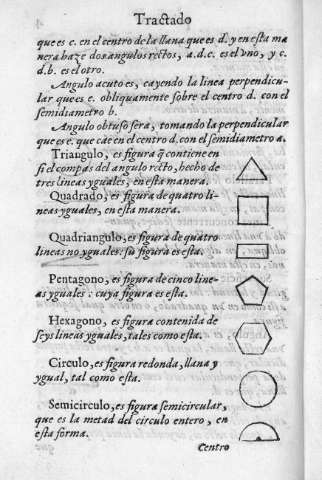 Tractado
que es c. en el centro de la llana que es d. y en esta ma
nera haze dos angulos rectos, a.d.c. es el vno, y c.
d.b. es el otro.
Angulo acuto es, cayendo la linea perpendicu-
lar que es e. obliquamente sobre el centro d. con el
semidiametro b.
Angulo obtuso sera, tomando la perpendicular
que es e. que cae en el centro d. con el semidiametro a.
Triangulo, es figura q̃ contiene en
si el compas del angulo recto, hecho de
tres lineas yguales, en esta manera.
Quadrado, es figura de quatro li-
neas yguales, en esta manera.
Quadriangulo, es figura de quatro
lineas no yguales: su figura es esta.
Pentagono, es figura de cinco line-
as yguales: cuya figura es esta.
Hexagono, es figura contenida de
seys lineas yguales, tales como esta.
Circulo, es figura redonda, llana y
ygual, tal como esta.
Semicirculo, es figura semicircular,
que es la metad del circulo entero, en
esta forma.
Centro